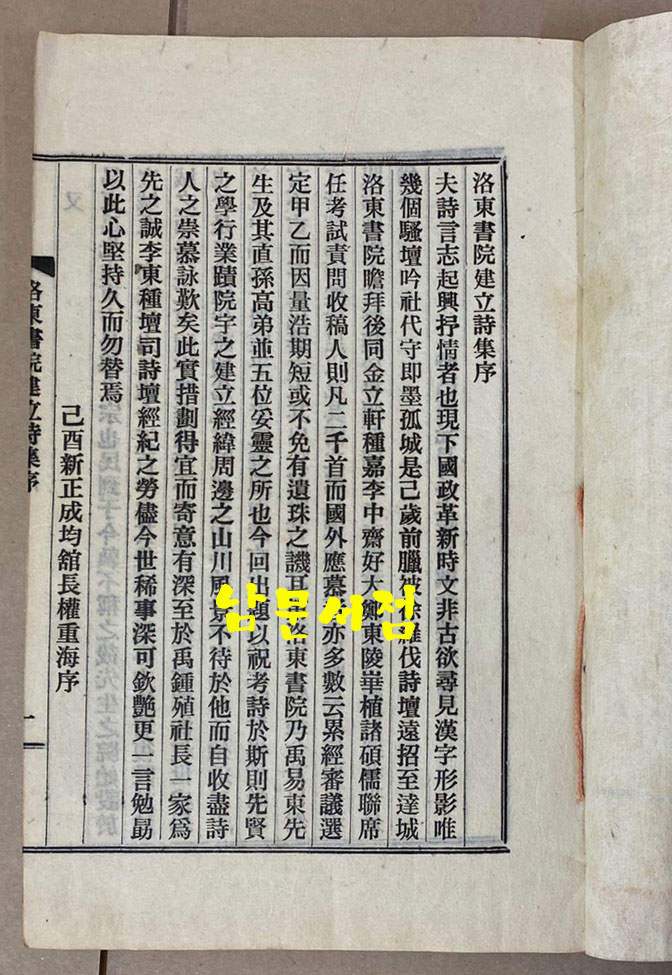 洛東書院建立詩集序
夫詩言志起興抒情者也現下國政革新時文非古欲尋見漢字形影唯
幾個騷壇吟社代守即墨孤城是己歲前臘被徐羅伐詩壇遠招至達城
洛東書院瞻拜後同金立軒種嘉李中齋好大鄭東陵崋植諸碩儒聯席
任考試責問收稿人則凡二千首而國外應慕 亦多數云累經審議選
定甲乙而因量浩期短或不免有遺珠之譏耳 洛東書院乃禹易東先
生及其直孫高弟並五位妥靈之所也今回出題以祝考詩於斯則先賢
之學行業蹟院宇之建立經緯周邊之山川風景不待於他而自收盡詩
人之崇慕詠歎矣此實措劃得宜而寄意有深至於禹鍾殖社長一家爲
先之誠李東種壇司詩壇經紀之勞儘今世稀事深可欽艶更一言勉勗
以此心堅持久而勿替焉
己酉新正成均館長權重海序
洛東書院建立詩集序
一
남문서점